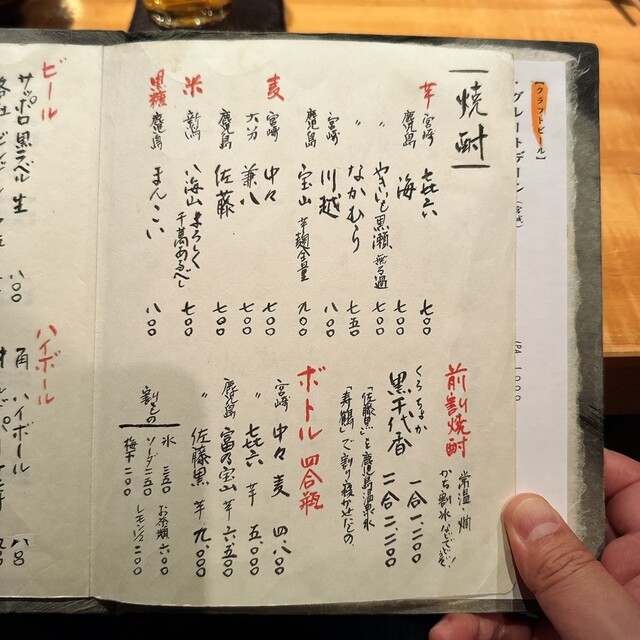 【クラフトビール】
グレートデーン
IPA 1000
焼酎
芋 宮崎 㐂六 七〇〇
鹿児島 海 七〇〇
〃 やきいも黒瀬 七〇〇
〃 なかむら 七五〇
宮崎 川越 八〇〇
鹿児島 宝山 芋麹全量 九〇〇
麦 宮崎 中々 七〇〇
大分 兼八 七〇〇
鹿児島 佐藤 七〇〇
米 新潟 八海山 よろしく千萬あるべし 七〇〇
黒糖 鹿児島 まんこい 八〇〇
前割焼酎
常温・燗
から割水などでどうぞ!!
くろぢょか
黒千代香 一合一、二〇〇
二合二、二〇〇
「佐藤黒」を鹿児島温泉水
「寿鶴」で割り寝かせたもの。
ボトル 四合瓶
宮崎 中々 麦 四、八〇〇
〃 㐂六 芋 五、〇〇〇
鹿児島 富乃宝山 芋 六、五〇〇
〃 佐藤黒 芋 九、〇〇〇
割もの
氷 三五〇 お茶類 六〇〇
ソーダ 二五〇 レモン1/2 二〇〇
梅干 二〇〇
ビール
サッポロ黒ラベル 生 八〇〇
ハイボール
角 ハイボール 八〇